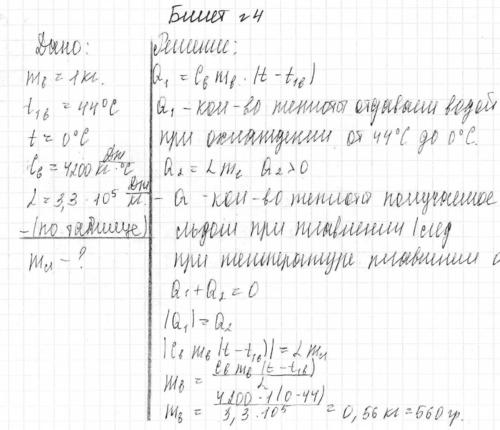 Билет №4
Дано:
mв = 1кг.
t1в = 44°C
t = 0°C
Cв = 4200 Дж/кг·°C
L = 3,3 · 10⁵ Дж/кг.
- (по таблице)
mл - ?
Решение:
Q₁ = Cв mв · (t - t1в)
Q₁ - кол-во теплоты отдаваем водой
при охлаждении от 44°C до 0°C.
Q₂ = L mл Q₂ > 0
- Q - кол-во теплоты получаемое
льдом при плавлении (лед
при температуре плавления
Q₁ + Q₂ = 0
|Q₁| = Q₂
|Cв mв (t - t1в)| = L mл
mв = Cв mв (t - t1в) / L
mв = 4200 · 1 (0 - 44) / 3,3 · 10⁵ = 0,56 кг = 560 гр.